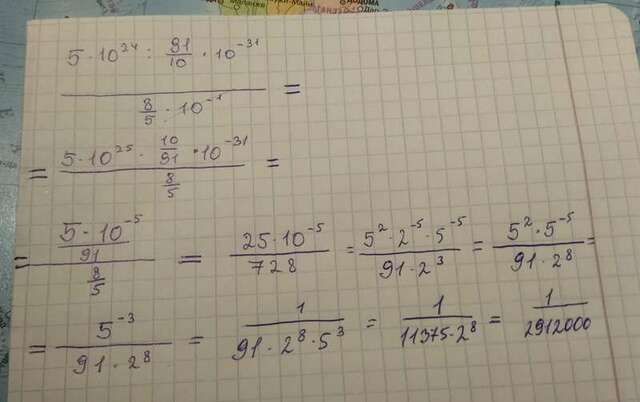 5·10²⁴ : 91/10 · 10⁻³¹
8/5 · 10⁻¹ =
= 5·10²⁵ · 10/91 · 10⁻³¹ =
8/5
= 5·10⁻⁵/91 / 8/5 = 25·10⁻⁵/728 = 5²·2⁻⁵·5⁻⁵/91·2³ = 5²·5⁻⁵/91·2⁸ =
= 5⁻³/91·2⁸ = 1/91·2⁸·5³ = 1/11375·2⁸ = 1/2912000